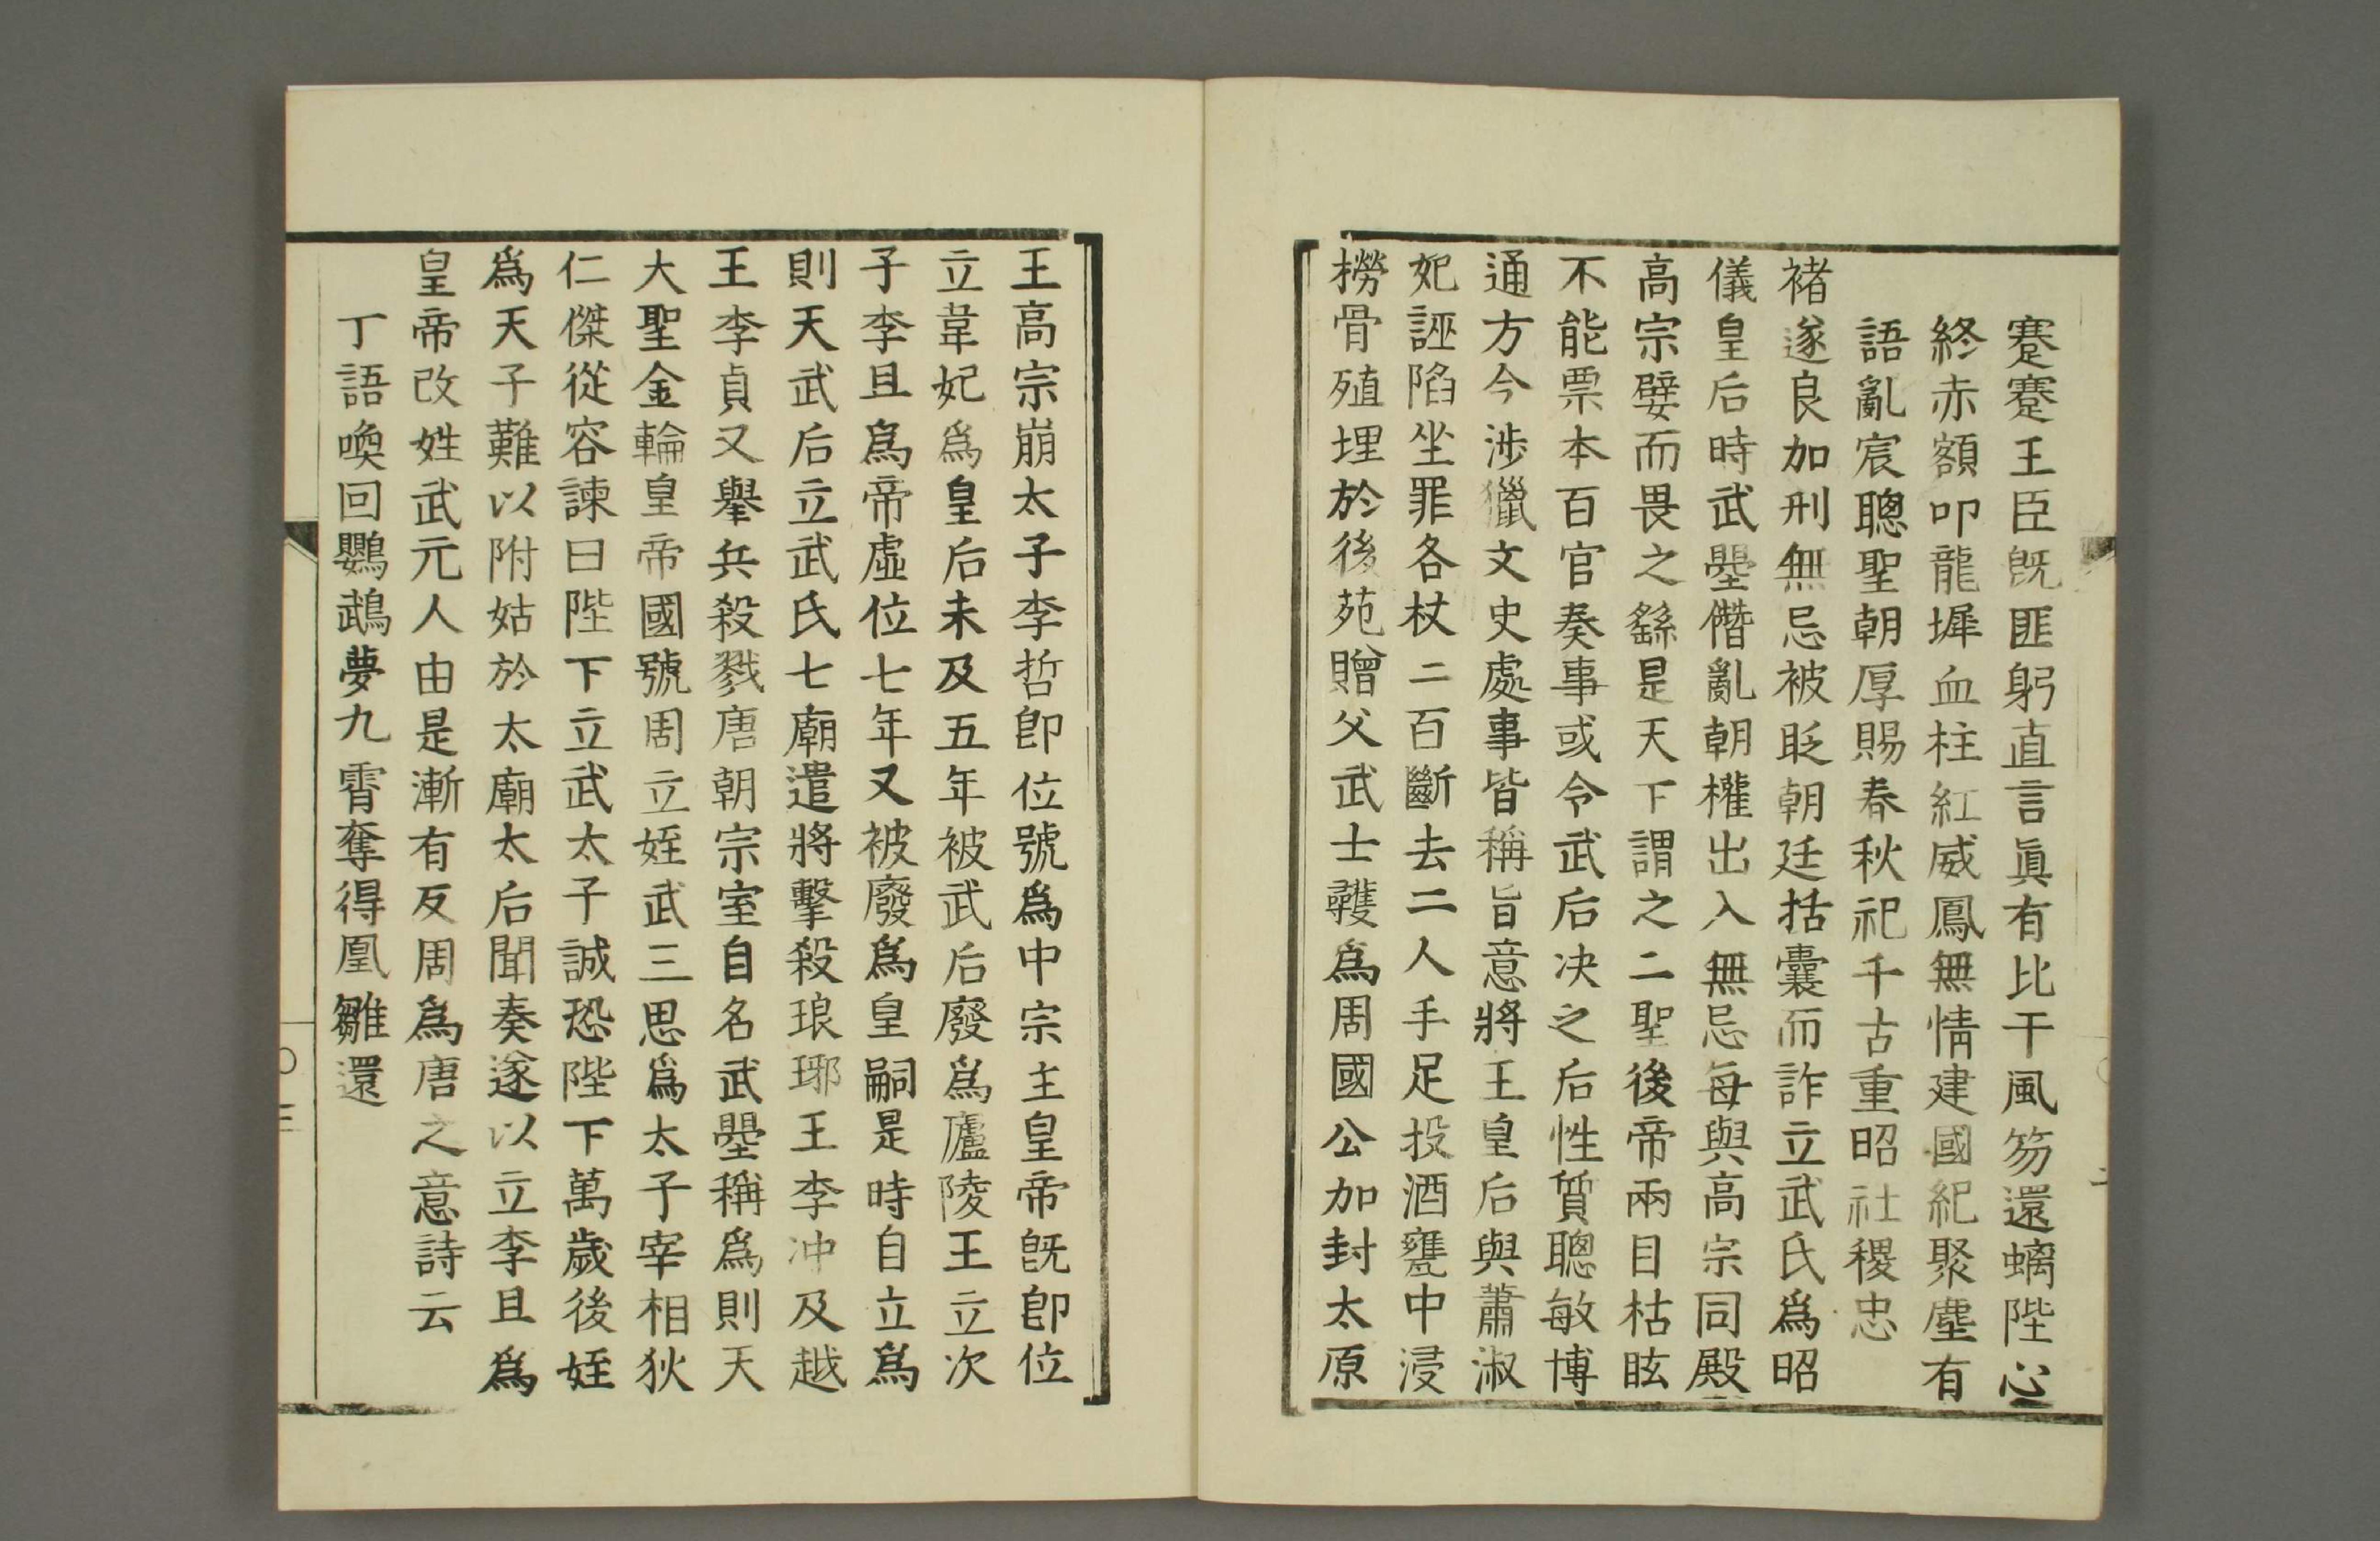 蹇蹇王臣既匪躬直言眞有比干風笏還螭陛心
終赤額叩龍墀血柱紅威鳳無情建國紀聚塵有
語亂宸聰聖朝厚賜春秋祀千古重昭社稷忠
褚遂良加刑無忌被貶朝廷括囊而詐立武氏爲昭
儀皇后時武曌僭亂朝權出入無忌每與高宗同殿
高宗嬖而畏之繇是天下謂之二聖後帝兩目枯眩
不能票本百官奏事或令武后决之后性質聰敏博
通方今涉獵文史處事皆稱旨意將王皇后與蕭淑
妃誣陷坐罪各杖二百斷去二人手足投酒甕中浸
撈骨殖埋於後苑贈父武士彠爲周國公加封太原
王高宗崩太子李哲卽位號爲中宗主皇帝既卽位
立韋妃爲皇后未及五年被武后廢爲廬陵王立次
子李旦爲帝虛位七年又被廢爲皇嗣是時自立爲
則天武后立武氏七廟遣將擊殺琅琊王李冲及越
王李貞又舉兵殺戮唐朝宗室自名武曌稱爲則天
大聖金輪皇帝國號周立姪武三思爲太子宰相狄
仁傑從容諫曰陛下立武太子誠恐陛下萬歲後姪
爲天子難以附姑於太廟太后聞奏遂以立李旦爲
皇帝改姓武元人由是漸有反周爲唐之意詩云
丁語喚回鸚鵡夢九霄奪得凰雛還